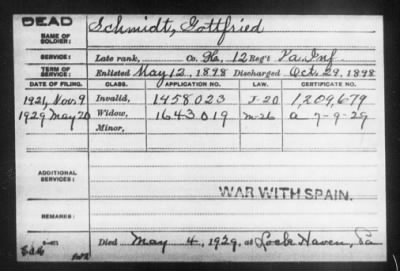 DEAD
NAME OF SOLDIER: Schmidt, Gottfried
SERVICE: Late rank, Co. H, 12 Reg't Pa. Inf.
TERM OF SERVICE: Enlisted May 12, 1898 Discharged Oct. 29, 1898
DATE OF FILING. CLASS. APPLICATION NO. LAW. CERTIFICATE NO.
1921, Nov. 9 Invalid, 1458023 J-20 1,209,679
1929 May 20 Widow, 1643019 M-26 a 7-9-29
Minor,
ADDITIONAL SERVICES:
WAR WITH SPAIN.
REMARKS:
Died May 4, 1929, at Lock Haven, Pa